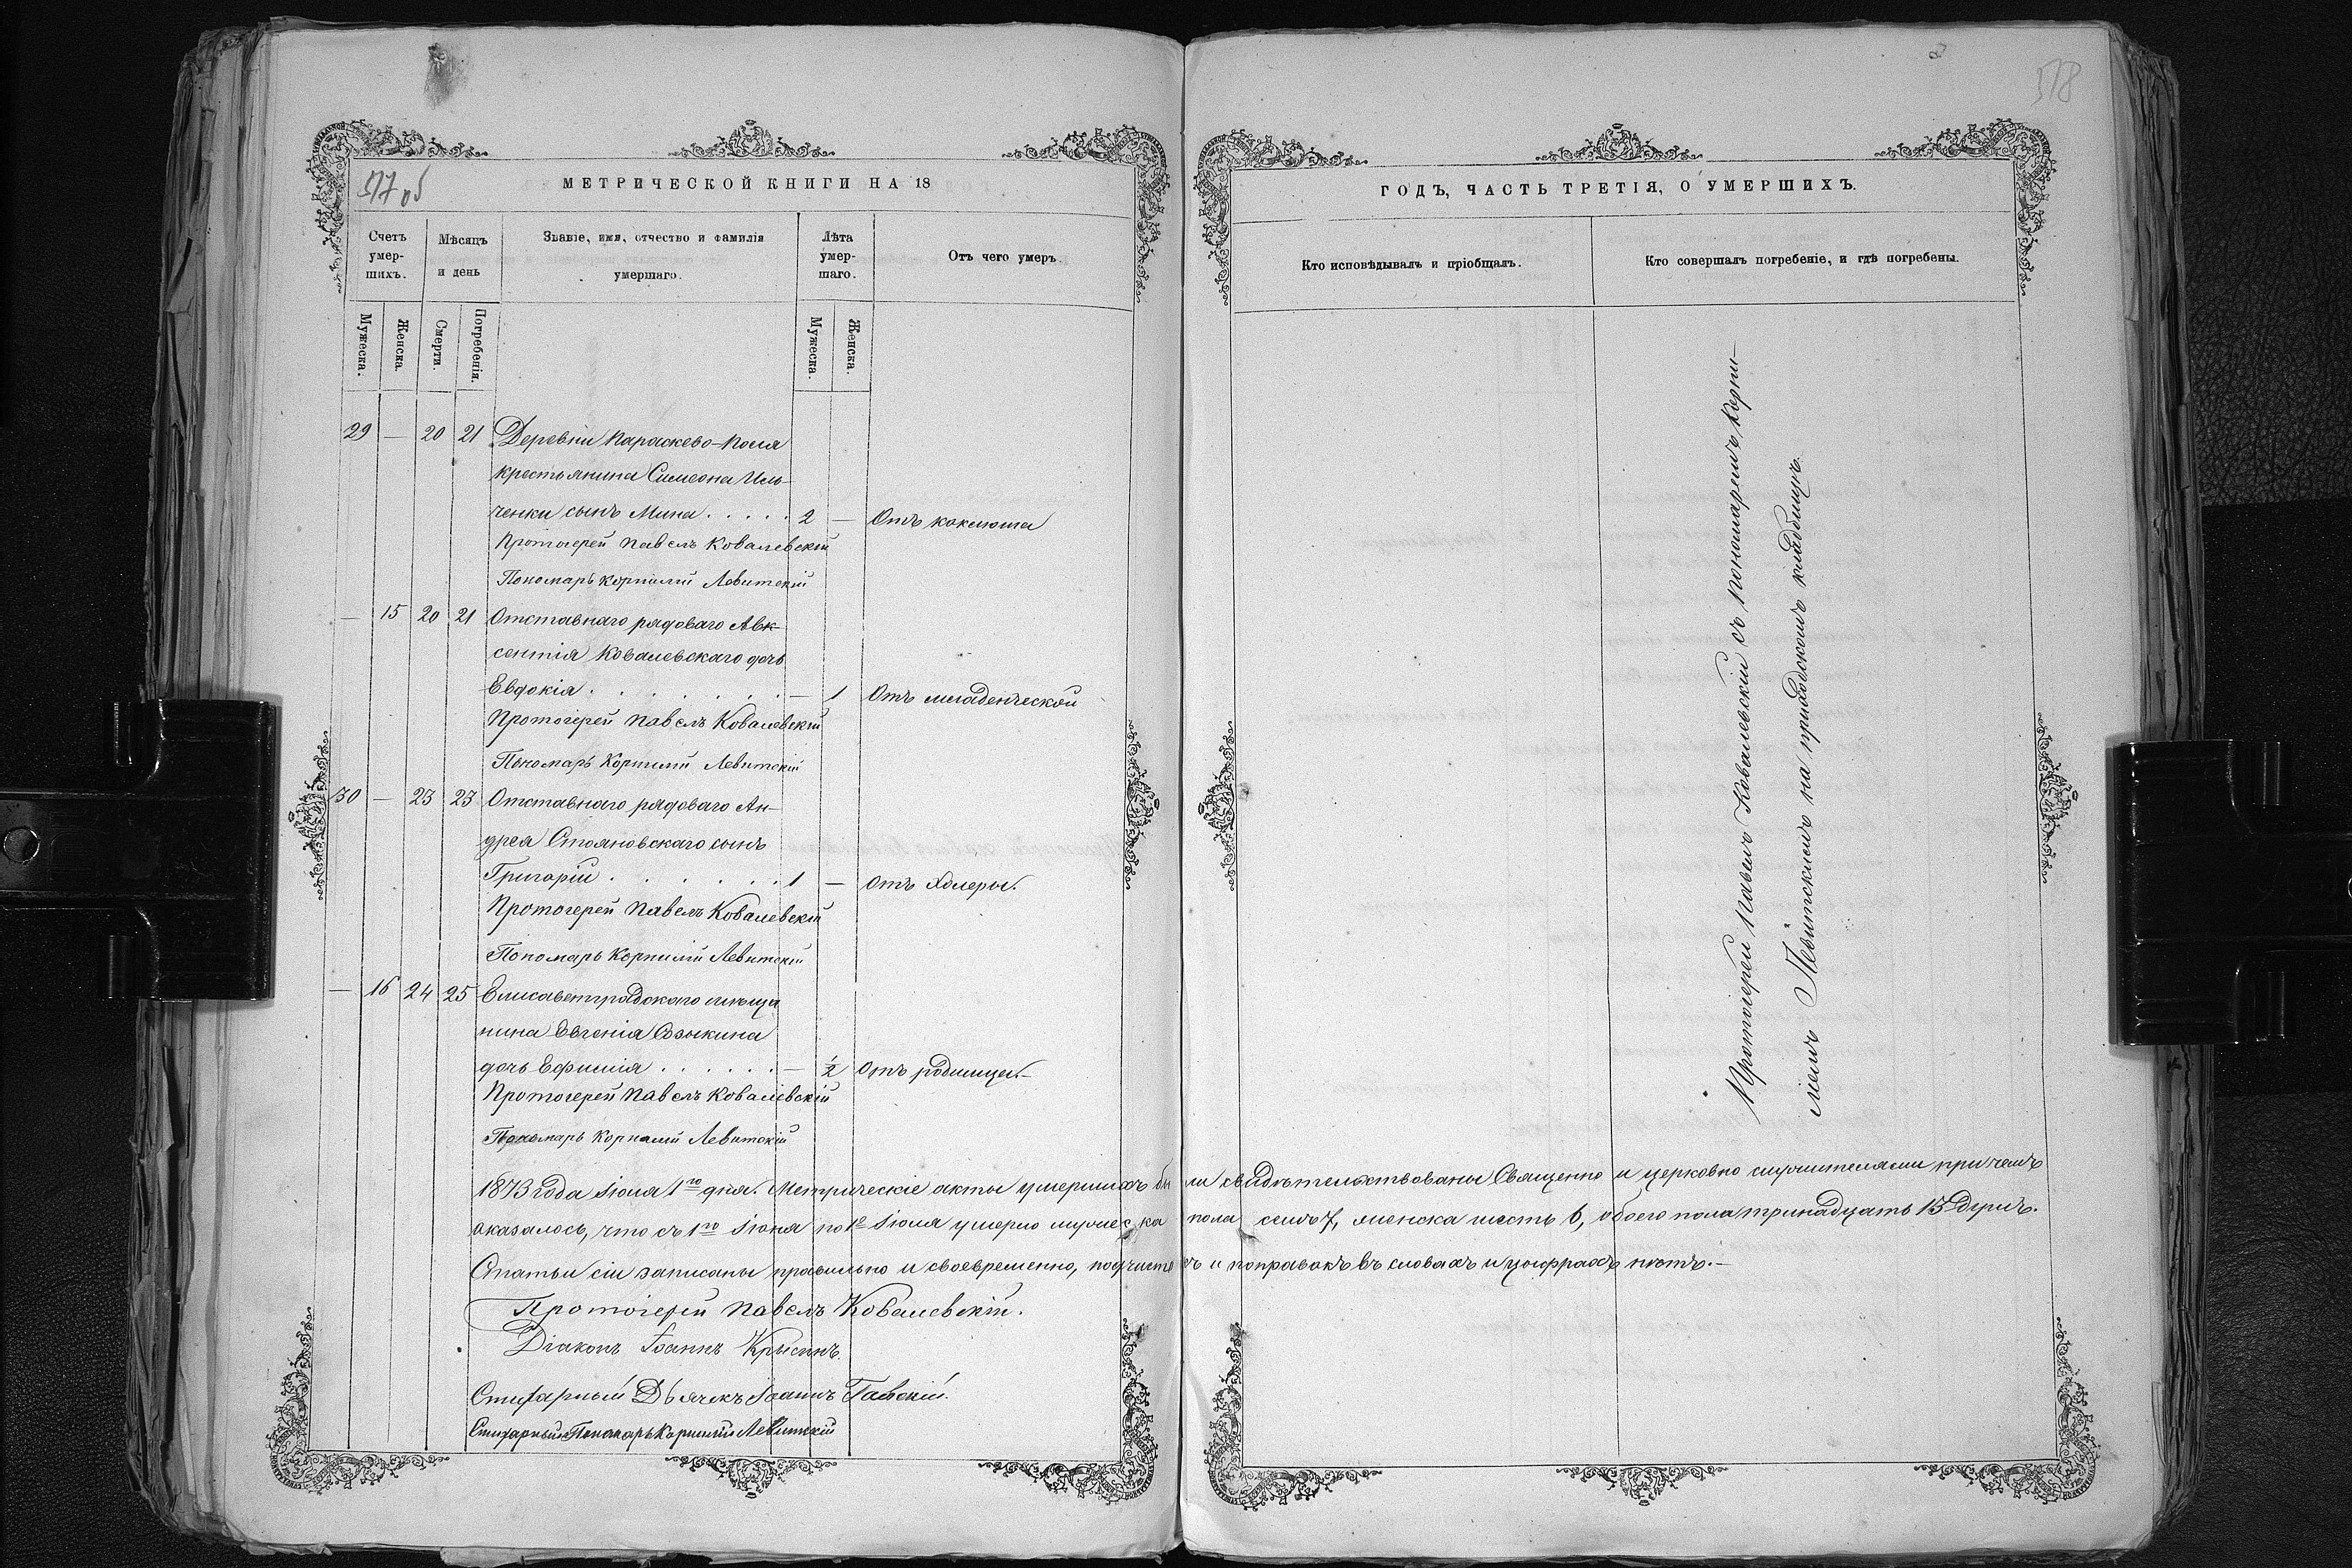 517 об
МЕТРИЧЕСКОЙ КНИГИ НА 18
Счетъ умер-шихъ.
Мѣсяцъ и день
Званіе, имя, отчество и фамилія умершаго.
Лѣта умер-шаго.
Отъ чего умеръ.
Мужеска.
Женска.
Смерти.
Погребенія.
Мужеска.
Женска.
29 — 20 21 Деревни Параскево-Поля
крестьянина Симеона Иль-
ченки сынъ Мина . . . . . 2 — Отъ коклюша
Протоіерей Павелъ Ковалевскій
Пономарь Корнилій Левитскій
— 15 20 21 Отставнаго рядоваго Авк-
сентія Ковалевскаго дочь
Евдокія . . . . . . . — 1 Отъ младенческой
Протоіерей Павелъ Ковалевскій
Пономарь Корнилій Левитскій
30 — 23 23 Отставнаго рядоваго Ан-
дрея Стояновскаго сынъ
Григорій . . . . . . . 1 — Отъ холеры.
Протоіерей Павелъ Ковалевскій
Пономарь Корнилій Левитскій
— 16 24 25 Елисаветградскаго мѣща
нина Евгенія
дочь Ефимія . . . . . . — ½ Отъ родимца.—
Протоіерей Павелъ Ковалевскій
Пономарь Корнилій Левитскій
518
ГОДЪ, ЧАСТЬ ТРЕТІЯ, О УМЕРШИХЪ.
Кто исповѣдывалъ и пріобщалъ.
Кто совершалъ погребеніе, и гдѣ погребены.
Протоіерей Павелъ Ковалевскій съ пономаремъ Корни-
ліемъ Левитскимъ на приходскомъ кладбищѣ.
1873 года Іюля 1го дня. Метрическіе акты умершихъ были свидѣтельствованы Священно и церковно служителями причемъ
оказалось, что съ 1го Іюня по 1е Іюля умерло мужеска пола семь 7, женска шесть 6, обоего пола тринадцать 13 душъ.
Статьи сіи записаны правильно и своевременно, подчистокъ и поправокъ въ словахъ и цыфрахъ нѣтъ.—
Протоіерей Павелъ Ковалевскій.
Діаконъ Іоаннъ Крысинъ.
Стихарный Дьячекъ Іоаннъ
Стихарный Пономарь Корнилій Левитскій